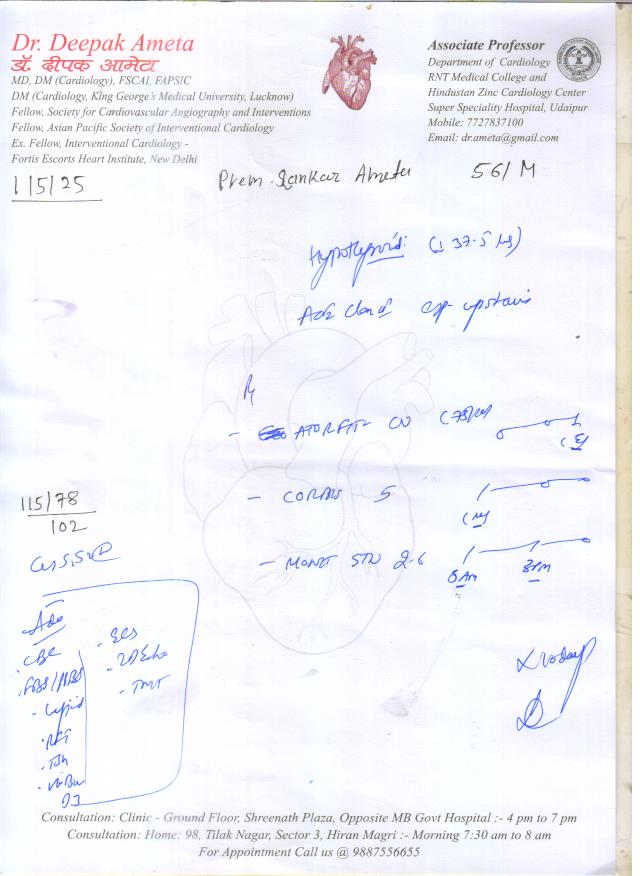 Dr. Deepak Ameta
डॉ. दीपक आमेटा
MD, DM (Cardiology), FSCAI, FAPSIC
DM (Cardiology, King George's Medical University, Lucknow)
Fellow, Society for Cardiovascular Angiography and Interventions
Fellow, Asian Pacific Society of Interventional Cardiology
Ex. Fellow, Interventional Cardiology -
Fortis Escorts Heart Institute, New Delhi
Associate Professor
Department of Cardiology
RNT Medical College and
Hindustan Zinc Cardiology Center
Super Speciality Hospital, Udaipur
Mobile: 7727837100
Email: dr.ameta@gmail.com
1/5/25
Prem Sankar Ameta 56/M
Hypothyroid (37.5
upstairs
- ATORFIT CV
- CORBIS 5
115/78
102
- MONIT 2.6
8AM 8PM
Ado
CBC
FBS/
- Lipid
- RFT
- TSH
- Vit B12
D3
- ECG
- 2D Echo
- TMT
Consultation: Clinic - Ground Floor, Shreenath Plaza, Opposite MB Govt Hospital :- 4 pm to 7 pm
Consultation: Home: 98, Tilak Nagar, Sector 3, Hiran Magri :- Morning 7:30 am to 8 am
For Appointment Call us @ 9887556655